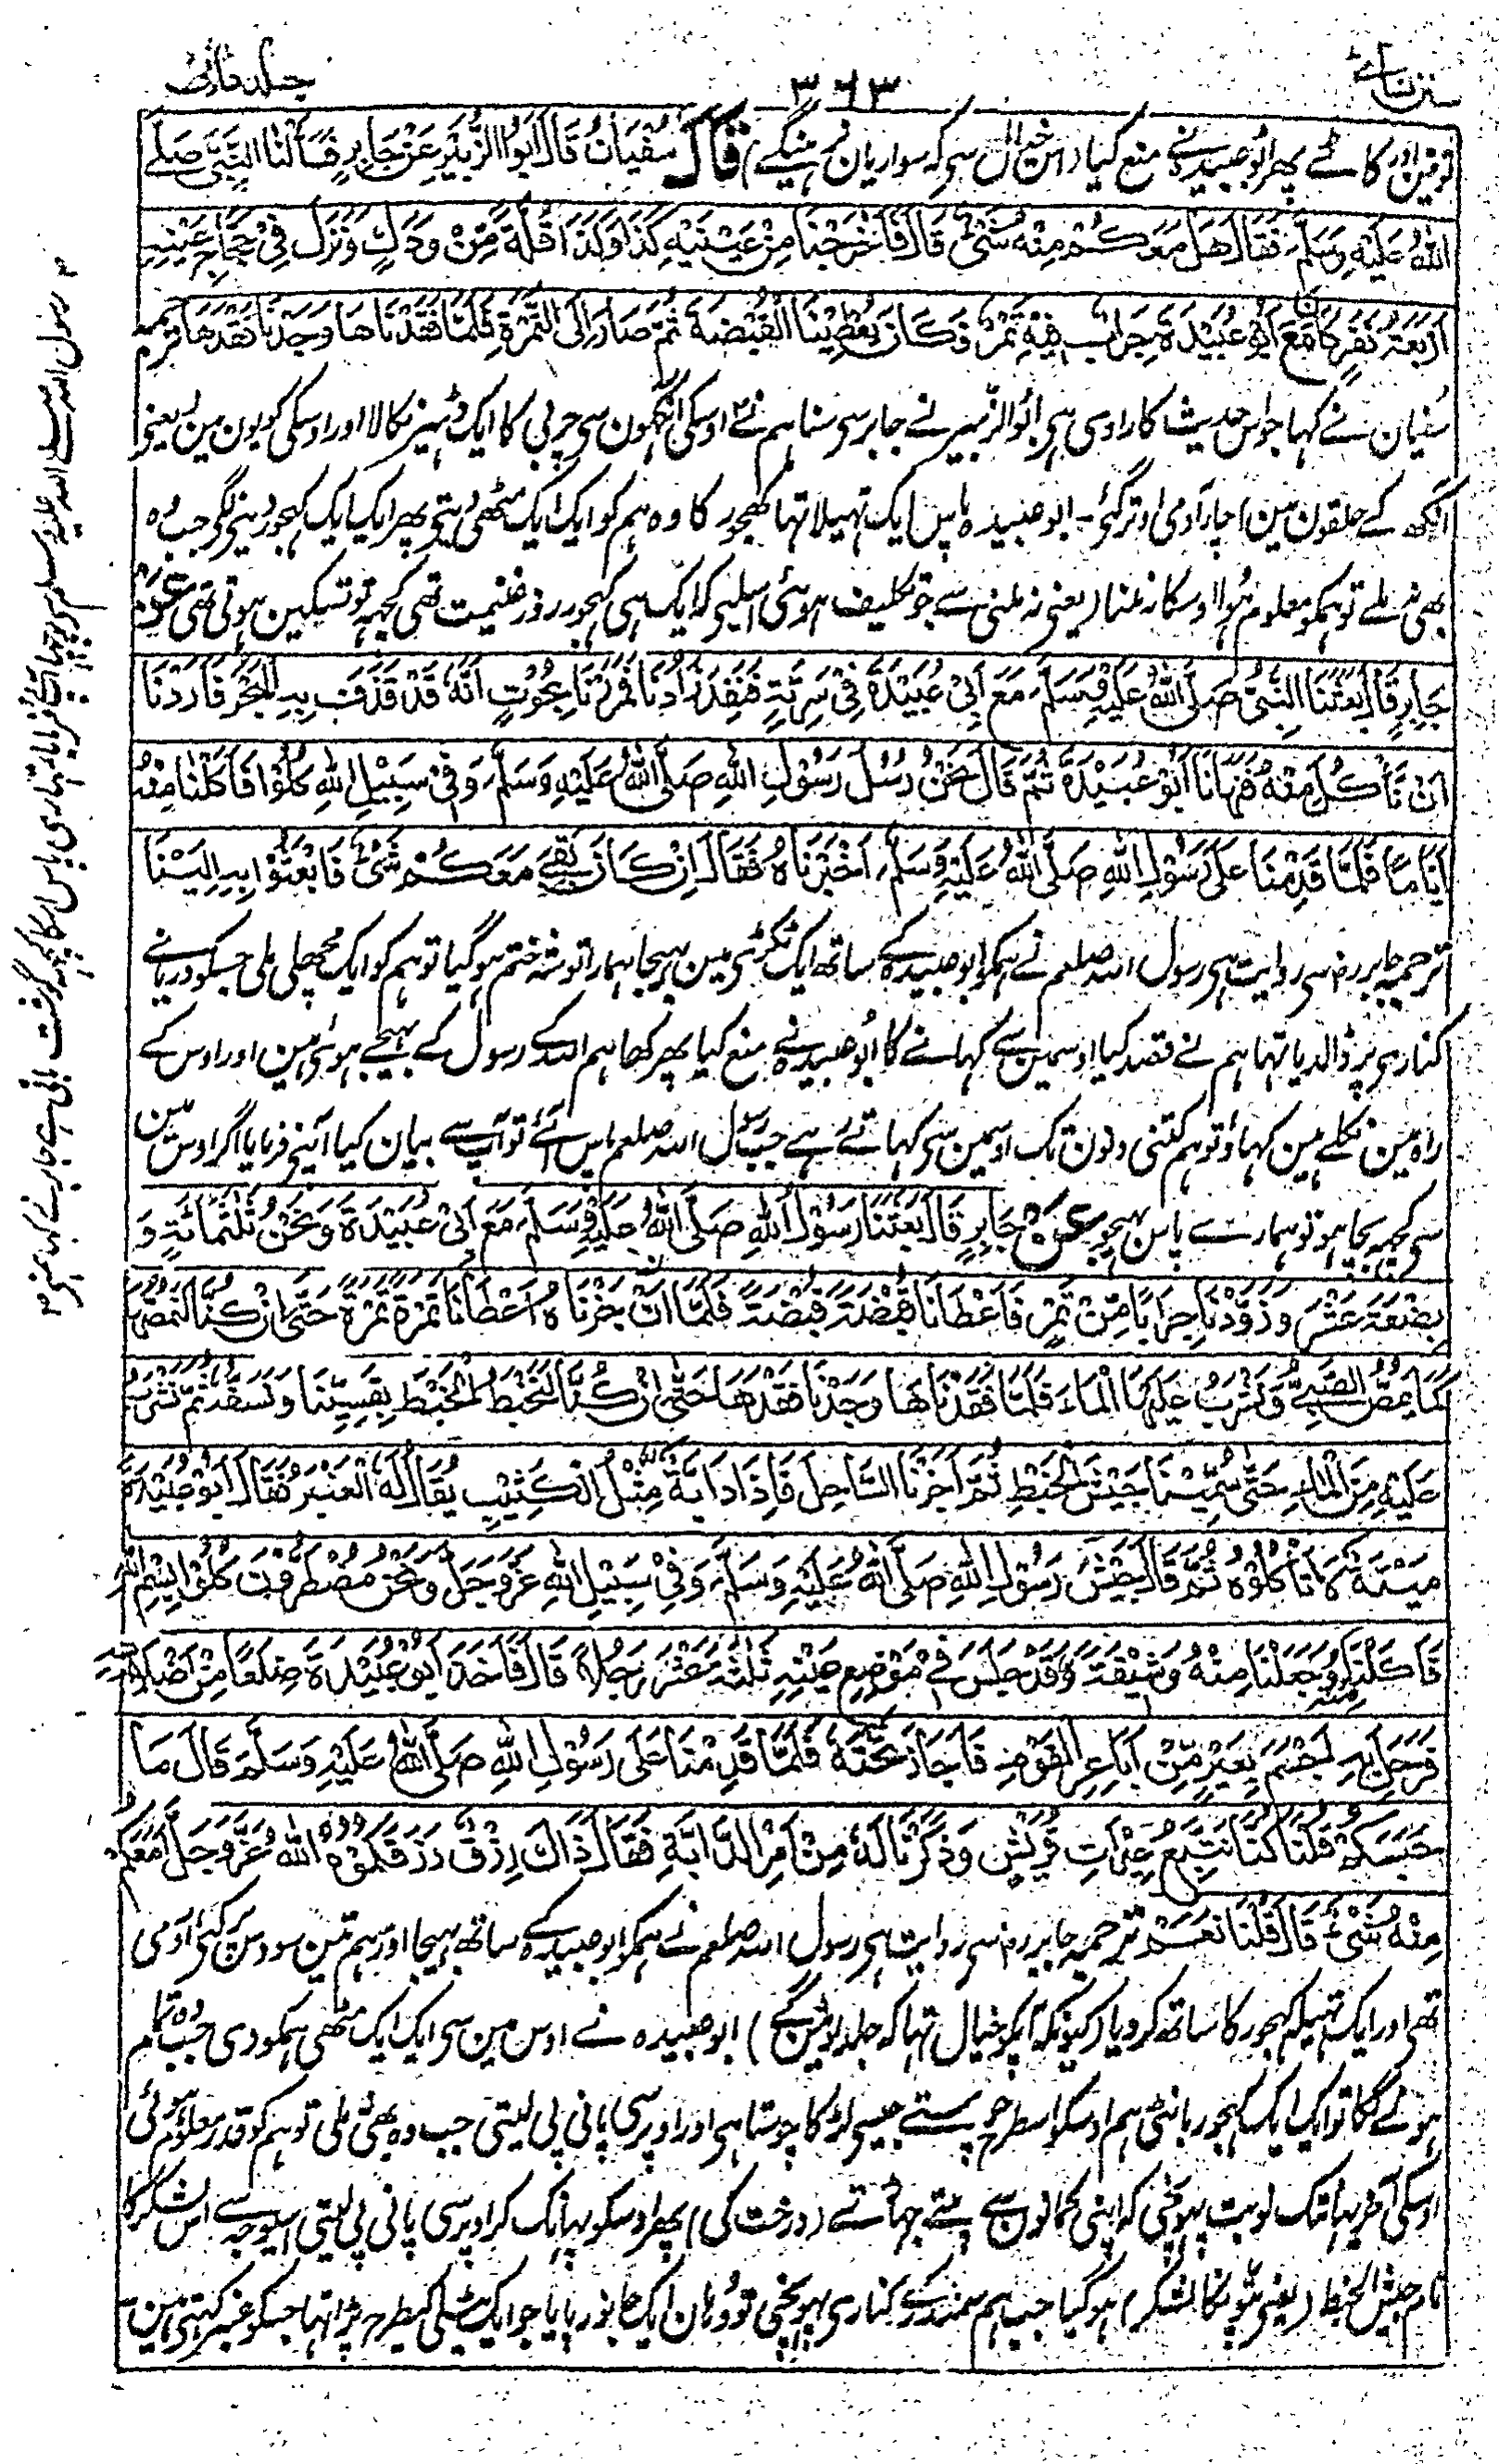 سنن نسائے
٣٦٣
جلد ثالث
کاٹے پھر ابو عبیدہ نے منع کیا (اس خیال سی کہ سواریان نہ رہینگے) قَالَ سُفْيَانُ قَالَ اَبُو الزُّبَيْرِ عَنْ جَابِرٍ فَسَأَلْنَا النَّبِيَّ صَلَّى
اللّٰهُ عَلَيْهِ وَسَلَّمَ فَقَالَ هَلْ مَعَكُمْ مِنْهُ شَيْءٌ قَالَ فَاَخْرَجْنَا مِنْ عَيْنَيْهِ كَذَا وَكَذَا قُلَّةً مِّنْ وَدَكٍ وَنَزَلَ فِيْ حَجَّاجِ عَيْنَيْهِ
اَرْبَعَةُ نَفَرٍ كَانَ مَعَ اَبُوْ عُبَيْدَةَ جِرَابٌ فِيْهِ تَمْرٌ فَكَانَ يُعْطِيْنَا الْقُبْضَةَ ثُمَّ صَارَ اِلَى التَّمْرَةِ فَلَمَّا فَقَدْنَاهَا وَجَدْنَا فَقْدَهَا ترجمہ
سفیان نے کہا جو اس حدیث کا راوی ہی ابو الزبیر نے جابر سی سنا ہم نے اوسکی آنکھون سی چربی کا ایک ڈھیر نکالا اور اوسکی کویون مین (یعنی
آنکھ کے حلقون مین) چار آدمی اوتر گئی۔ ابو عبیدہ پاس ایک تہیلا تہا کھجور کا وہ ہم کو ایک ایک مٹھی دیتی پھر ایک ایک کہجور دینی لگی جب وہ
بھی نہ ملے تو ہمکو معلوم ہوا اوسکا نہ ملنا (یعنی نہ ملنی سے جو تکلیف ہوئی اسلیی کہ ایک ہی کہجور ہر روز غنیمت تھی کچہہ تو تسکین ہوتی تھی) عَنْ
جَابِرٍ قَالَ بَعَثَنَا النَّبِيُّ صَلَّى اللّٰهُ عَلَيْهِ وَسَلَّمَ مَعَ اَبِيْ عُبَيْدَةَ فِيْ سَرِيَّةٍ فَنَفِدَ زَادُنَا فَمَرَرْنَا بِحُوْتٍ اَنَّهُ قَدْ قَذَفَ بِهِ الْبَحْرُ فَاَرَدْنَا
اَنْ نَّاْكُلَ مِنْهُ فَنَهَانَا اَبُوْ عُبَيْدَةَ ثُمَّ قَالَ نَحْنُ رُسُلُ رَسُوْلِ اللّٰهِ صَلَّى اللّٰهُ عَلَيْهِ وَسَلَّمَ وَفِيْ سَبِيْلِ اللّٰهِ كُلُوْا فَاَكَلْنَا مِنْهُ
اَيَّامًا فَلَمَّا قَدِمْنَا عَلَى رَسُوْلِ اللّٰهِ صَلَّى اللّٰهُ عَلَيْهِ وَسَلَّمَ اَخْبَرْنَاهُ فَقَالَ اِنْ كَانَ بَقِيَ مَعَكُمْ شَيْءٌ فَابْعَثُوْا بِهِ اِلَيْنَا
ترجمہ جابر رض سی روایت ہی رسول اللہ صلعم نے ہمکو ابو عبیدہ کے ساتھ ایک ٹکڑی مین بہیجا ہمارا توشہ ختم ہو گیا تو ہم کو ایک مچھلی ملی جسکو دریا نے
کناری پر ڈالدیا تہا ہم نے قصد کیا اوسمین سے کہانے کا ابو عبیدہ نے منع کیا پھر کہا ہم اللہ کے رسول کے بہیجے ہوئی ہین اور اوس کے
راہ مین نکلے ہین کہاؤ تو ہم کتنی دنون تک اوسمین سی کہاتے رہے جب رسول اللہ صلعم پاس آئے تو آپ سے بیان کیا آپنے فرمایا اگر اوس مین
سی کچہہ بچا ہو تو ہمارے پاس بہیجو عَنْ جَابِرٍ قَالَ بَعَثَنَا رَسُوْلُ اللّٰهِ صَلَّى اللّٰهُ عَلَيْهِ وَسَلَّمَ مَعَ اَبِيْ عُبَيْدَةَ وَنَحْنُ ثَلٰثُمِائَةٍ وَ
بِضْعَةَ عَشَرَ وَزَوَّدْنَا جِرَابًا مِّنْ تَمْرٍ فَاَعْطَانَا قُبْضَةً قُبْضَةً فَلَمَّا اَنْ جُزْنَاهُ اَعْطَانَا تَمْرَةً تَمْرَةً حَتّٰى اِنْ كُنَّا لَنَمُصُّهَا
كَمَا يَمُصُّ الصَّبِيُّ وَنَشْرَبُ عَلَيْهَا الْمَاءَ فَلَمَّا فَقَدْنَاهَا وَجَدْنَا فَقْدَهَا حَتّٰى اِنْ كُنَّا لَنَخْبِطُ الْخَبَطَ بِقِسِيِّنَا وَنَسَفُّهُ ثُمَّ نَشْرَبُ
عَلَيْهِ مِنَ الْمَاءِ حَتّٰى سُمِّيْنَا جَيْشَ الْخَبَطِ ثُمَّ اَجَزْنَا السَّاحِلَ فَاِذَا دَابَّةٌ مِثْلُ الْكَثِيْبِ يُقَالُ لَهُ الْعَنْبَرُ فَقَالَ اَبُوْ عُبَيْدَةَ
مَيْتَةٌ لَا تَأْكُلُوْهُ ثُمَّ قَالَ جَيْشُ رَسُوْلِ اللّٰهِ صَلَّى اللّٰهُ عَلَيْهِ وَسَلَّمَ وَفِيْ سَبِيْلِ اللّٰهِ عَزَّ وَجَلَّ وَنَحْنُ مُضْطَرُّوْنَ كُلُوْا بِسْمِ اللّٰهِ
فَاَكَلْنَا مِنْهُ وَجَعَلْنَا مِنْهُ وَشِيْقَةً وَقَدْ جَلَسَ فِيْ مَوْضِعِ عَيْنِهِ ثَلٰثَةَ عَشَرَ رَجُلًا قَالَ فَاَخَذَ اَبُوْ عُبَيْدَةَ ضِلَعًا مِنْ اَضْلَاعِهِ
فَرَحَلَ بِهِ اَجْسَمَ بَعِيْرٍ مِّنْ اَبَاعِرِ الْقَوْمِ فَاَجَازَ تَحْتَهُ فَلَمَّا قَدِمْنَا عَلَى رَسُوْلِ اللّٰهِ صَلَّى اللّٰهُ عَلَيْهِ وَسَلَّمَ قَالَ مَا
حَبَسَكُمْ قُلْنَا كُنَّا نَتَّبِعُ عِيْرَاتِ قُرَيْشٍ وَذَكَرْنَا لَهُ مِنْ اَمْرِ الدَّابَّةِ فَقَالَ ذَاكَ رِزْقٌ رَزَقَكُمُوْهُ اللّٰهُ عَزَّ وَجَلَّ اَمَعَكُمْ
مِنْهُ شَيْءٌ قَالَ قُلْنَا نَعَمْ ترجمہ جابر رض سی روایت ہی رسول اللہ صلعم نے ہمکو ابو عبیدہ کے ساتھ بہیجا اور ہم تین سو دس پر کئی آدمی
تھی اور ایک تہیلہ کہجور کا ساتھ کر دیا (کیونکہ آپکو خیال تہا کہ جلد لوٹین گے) ابو عبیدہ نے اوس مین سی ایک ایک مٹھی ہمکو دی جب وہ تمام
ہونے لگا تو ایک ایک کہجور بانٹی ہم اوسکو اسطرح چوستے جیسی لڑکا چوستا ہی اور اوپر سی پانی پی لیتی جب وہ بھی نہ ملی تو ہم کو قدر معلوم ہوئی
اوسکی آخر یہانتک نوبت پہونچی کہ اپنی کمانون سے پتے جہاڑتے (درخت کی) پھر اوسکو پہانک کر اوپر سی پانی پی لیتی اسیوجہ سے اس لشکر کا
نام جیش الخبط (یعنی پتونکا لشکر) ہو گیا جب ہم سمندر کے کناری پہونچی تو وہان ایک جانور پایا جو ایک ٹیلی کیطرح پڑا تہا جسکو عنبر کہتی ہین